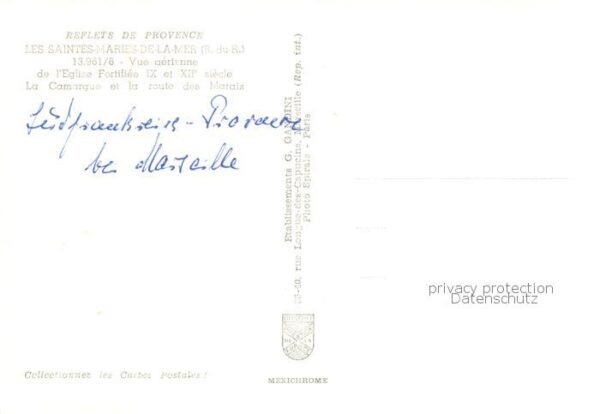 REFLETS DE PROVENCE
LES SAINTES-MARIES-DE-LA-MER (B.-du-R.)
13.961/6 - Vue aérienne
de l'Eglise Fortifiée IX et XIIe siècle
La Camargue et la route des Marais
Südfrankreich - Provence
bei Marseille
Etablissements G. GANDINI
rue Longue-des-Capucins, Marseille (Rep. int.)
Photo Spirale - Paris
privacy protection
Datenschutz
Collectionnez les Cartes Postales !
MEXICHROME